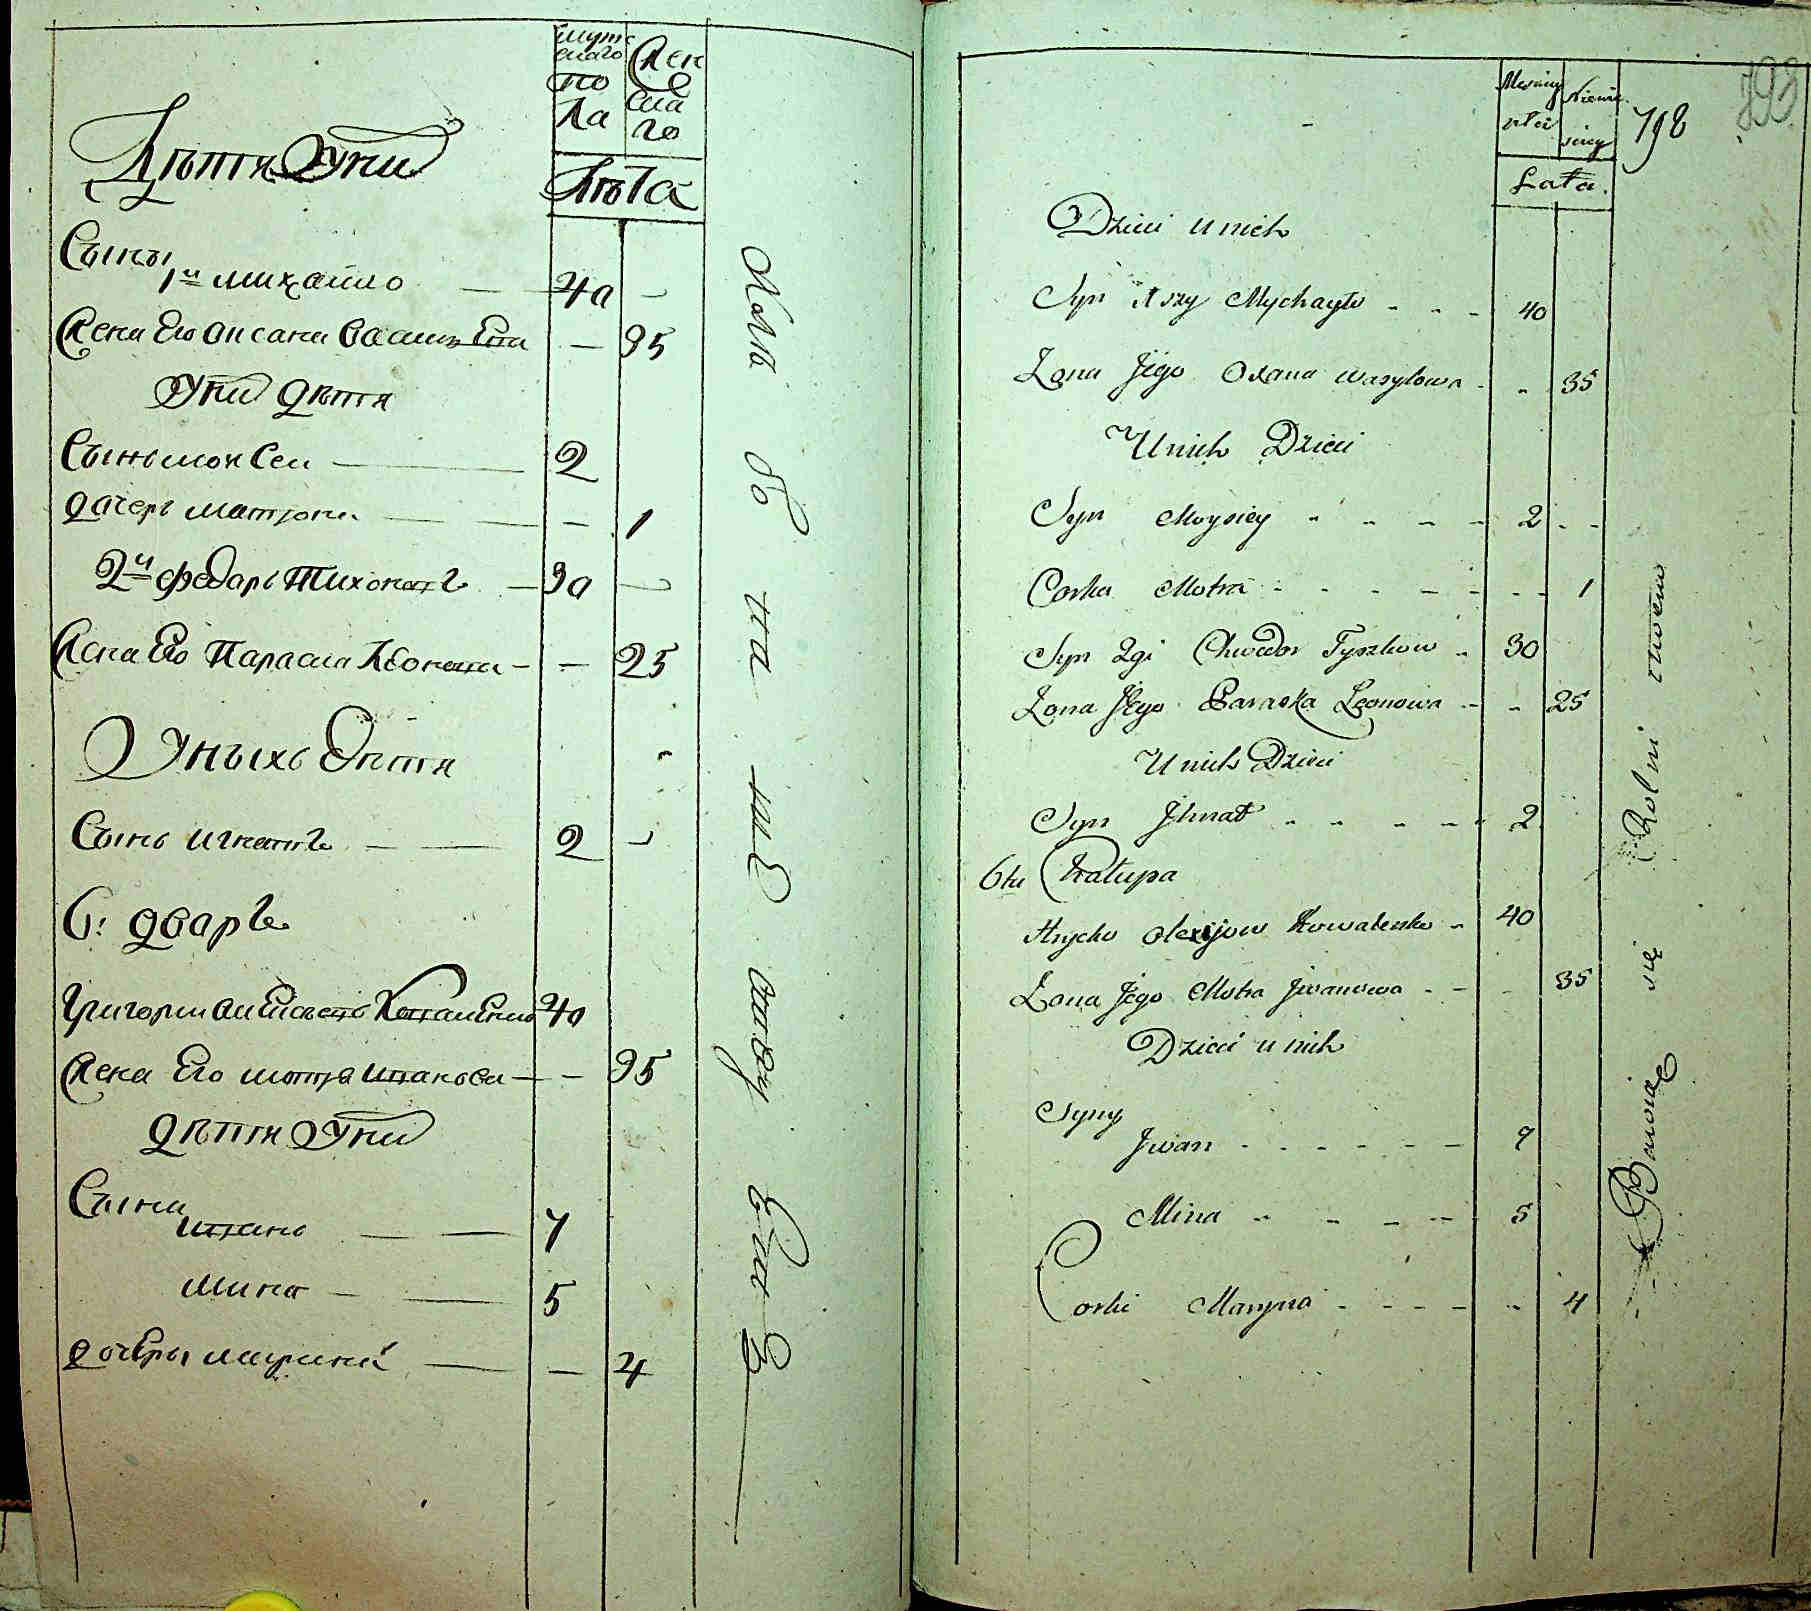 мужескаго пола
женскаго
лѣта
Дѣти у ни
Сыны
1й михайло 40
жена Его оксана василева 35
у ни дѣти
Сынъ моисеи 2
дачеръ матрона 1
2й федаръ Тихонавъ 30
жена Его Параска Леонава 25
У ныхъ дѣти
Сынъ игнатъ 2
6: дваръ
Григории алексѣевъ Коваленко 40
жена Его мотра иванова 35
дѣти у ни
Сыни
иванъ 7
мина 5
дочеры марина 4
Męzczy
Niewie
798
793
Lata.
Dzieci u nich
Syn 1szy Mychayło 40
Żona Jego Oxana wasylowa 35
U nich Dzieci
Syn Moysiey 2
Corka Motra 1
Syn 2gi Chwedor Tyszkow 30
Żona Jego Paraska Leonowa 25
U nich Dzieci
Syn Jhnat 2
6ta Chałupa
Hrycko Olexijow Kowalenko 40
Żona Jego Motra Jwanowa 35
Dzieci u nich
Syny
Jwan 7
Mina 5
Corki Maryna 4
Bawią się Rolnictwem